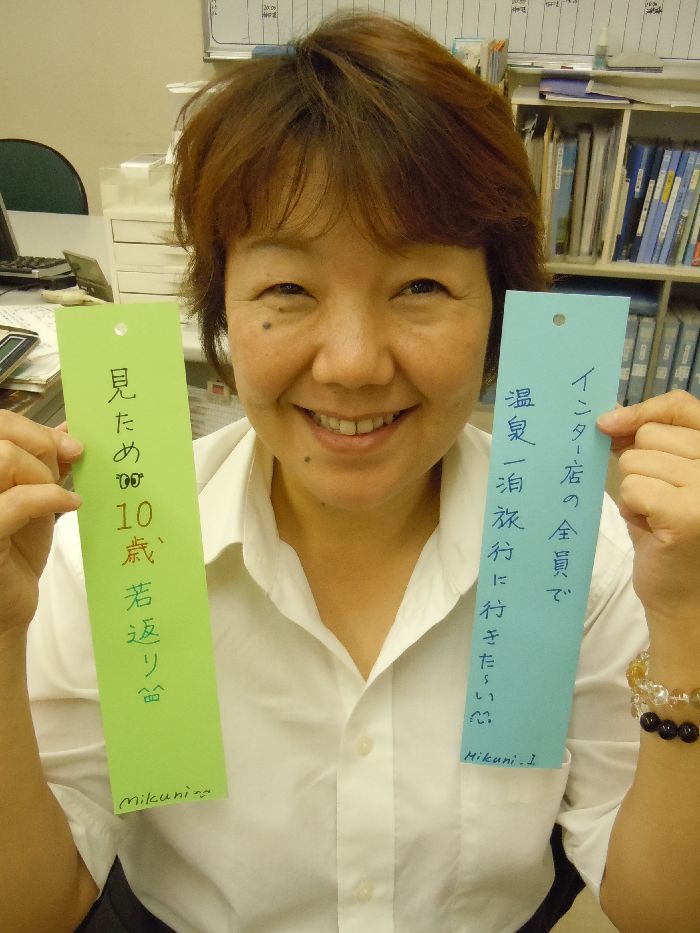 見ため
10歳
若返り
Mikuni
インター店の全員で
温泉一泊旅行に行きたーい
Mikuni.I